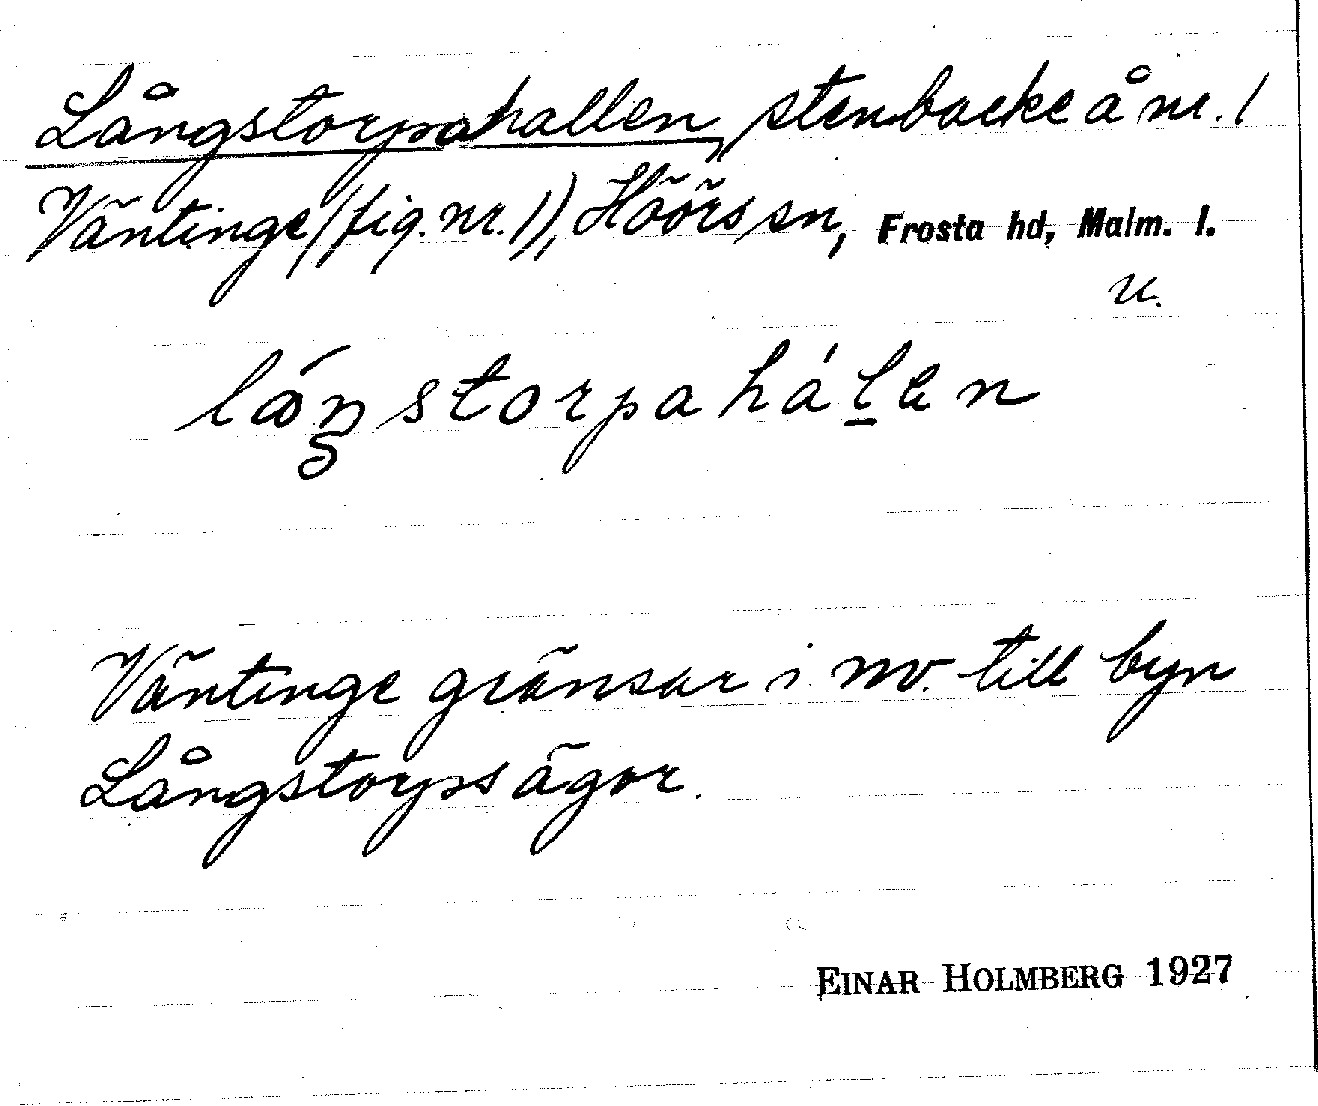 Långstorpahallen, stenbacke å nr. 1
Väntinge (fig. nr. 1), Höörs sn, Frosta hd, Malm. l.
u.
låŋstorpahálen
Väntinge gränsar i nv. till byn
Långstorps ägor.
EINAR HOLMBERG 1927